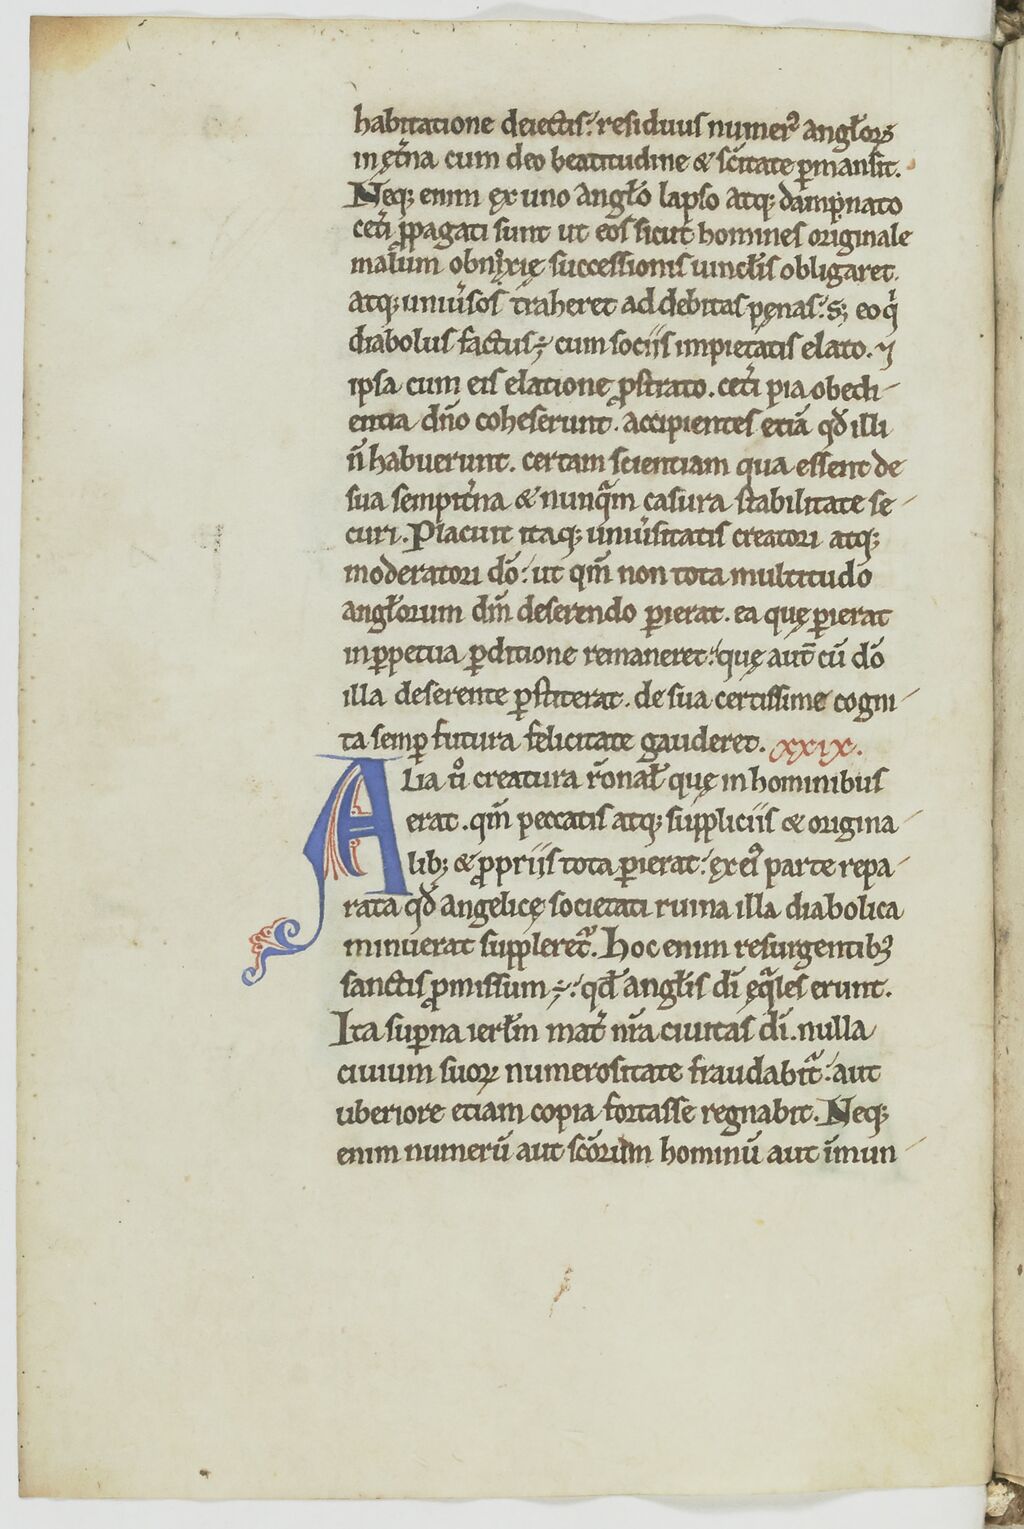 habitatione deiectis. residuus numerꝰ angłoꝝ
in et͛na cum deo beatitudine & sc̄itate ꝑmansit.
Neqꝫ enim ex uno angło lapso atqꝫ dampnato
cet͛i ꝓpagati sunt ut eos sicut homines originale
małum obnoxię successionis uincłis obligaret.
atqꝫ uniu͛sos traheret ad debitas pęnas. sꝫ eo qͥ
diabolus factus ÷ cum sociis impietatis elato. ⁊
ipsa cum eis elatione ꝓstrato. cet͛i pia obedi-
entia dn̄o coheserunt. accipientes etiā qd̄ illi
n̄ habuerunt. certam scientiam qua essent de
sua sempit͛na & nunqͣm casura stabilitate se-
curi. Placuit itaqꝫ uniu͛sitatis creatori atqꝫ
moderatori dō. ut qm̄ non tota multitudo
angłorum dm̄ deserendo ꝑierat. ea quę ꝑierat
in ꝑpetua ꝑditione remaneret. quę aut̄ cū dō
illa deserente ꝑstiterat. de sua certissime cogni-
ta semꝑ futura felicitate gauderet. xxix.
Alia u͛o creatura r̄onał quę in hominibus
erat. qm̄ peccatis atqꝫ suppliciis & origina-
libꝫ & ꝓpriis tota ꝑierat. ex eiꝰ parte repa-
rata qd̄ angelicę societati ruina illa diabolica
minuerat suppleret᷑. hoc enim resurgentibꝫ
sanctis ꝓmissum ÷. qd̄ angłis di̅ ęqͣles erunt.
Ita suꝑna ierłm mat͛ nr̄a ciuitas di̅. nulla
ciuium suoꝝ numerositate fraudabit᷑. aut
uberiore etiam copia fortasse regnabit. Neqꝫ
enim numerū aut sc̄orum hominū aut īmun-